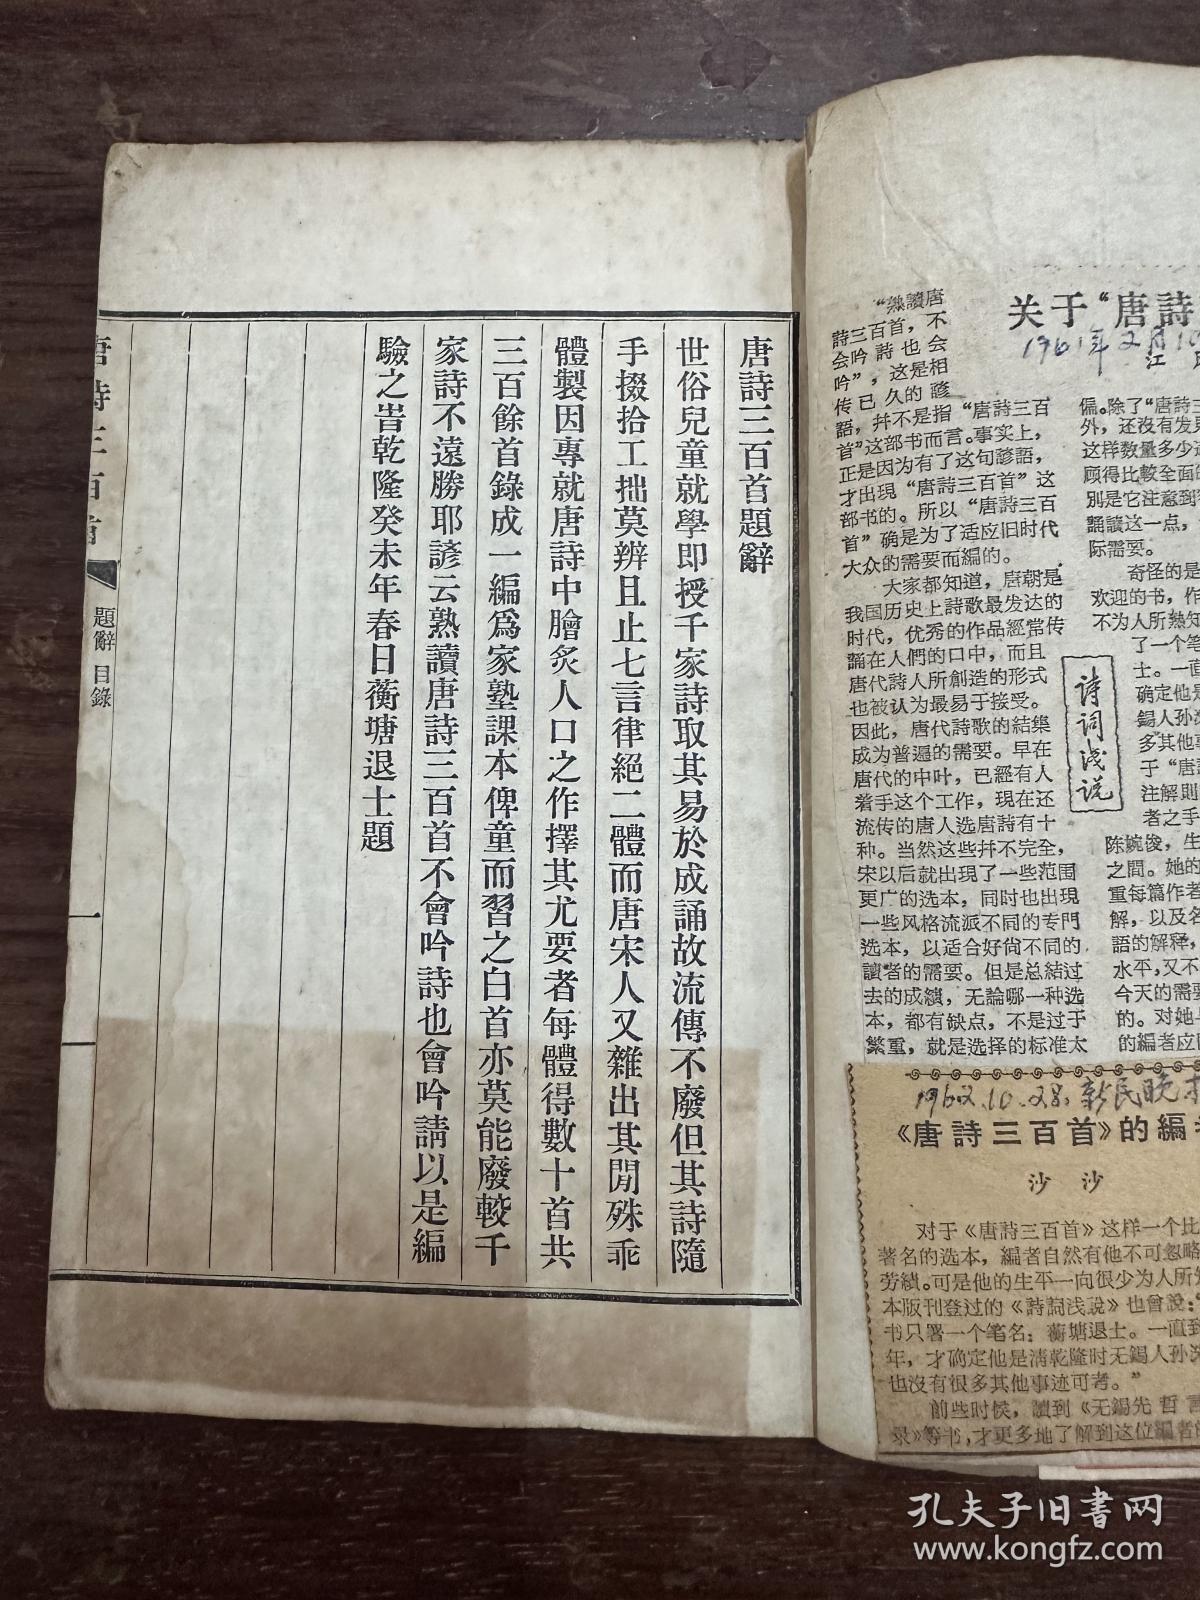 唐詩三百首題辭
世俗兒童就學即授千家詩取其易於成誦故流傳不廢但其詩隨
手掇拾工拙莫辨且止七言律絕二體而唐宋人又雜出其閒殊乖
體製因專就唐詩中膾炙人口之作擇其尤要者每體得數十首共
三百餘首錄成一編為家塾課本俾童而習之白首亦莫能廢較千
家詩不遠勝耶諺云熟讀唐詩三百首不會吟詩也會吟請以是編
驗之旹乾隆癸未年春日蘅塘退士題
唐詩三百首
題辭 目錄
一
关于“唐詩
1961年2月10
江
“熟讀唐
詩三百首，不
会吟詩也会
吟”，这是相
传已久的諺
語，幷不是指“唐詩三百
首”这部书而言。事实上，
正是因为有了这句諺語，
才出現“唐詩三百首”这
部书的。所以“唐詩三百
首”确是为了适应旧时代
大众的需要而編的。
大家都知道，唐朝是
我国历史上詩歌最发达的
时代，优秀的作品經常传
誦在人們的口中，而且
唐代詩人所創造的形式
也被认为最易于接受。
因此，唐代詩歌的結集
成为普遍的需要。早在
唐代的中叶，已經有人
着手这个工作，現在还
流传的唐人选唐詩有十
种。当然这些幷不完全，
宋以后就出現了一些范围
更广的选本，同时也出現
一些风格流派不同的专門
选本，以适合好尚不同的
讀者的需要。但是总結过
去的成績，无論哪一种选
本，都有缺点，不是过于
繁重，就是选择的标准太
偏。除了“唐詩三
外，还沒有发
这样数量多少
顾得比較全面
別是它注意到
誦讀这一点，
际需要。
奇怪的是
欢迎的书，作
不为人所熟知
了一个笔
士。一直
确定他是
錫人孙
多其他事
于“唐詩
注解則
者之手
陈婉俊，生
之間。她的
重每篇作者
解，以及名
語的解释，
水平，又不
今天的需要
的。对她
的編者应
诗词浅说
1962.10.28.新民晚
《唐詩三百首》的編
沙沙
对于《唐詩三百首》这样一个比
著名的选本，編者自然有他不可忽略
劳績。可是他的生平一向很少为人所
本版刊登过的《詩詞浅說》也曾說：“
书只署一个笔名：蘅塘退士。一直到
年，才确定他是清乾隆时无錫人孙洙
也沒有很多其他事迹可考。”
前些时候，讀到《无錫先哲言
录》等书，才更多地了解到这位編者的
孔夫子旧书网
www.kongfz.com